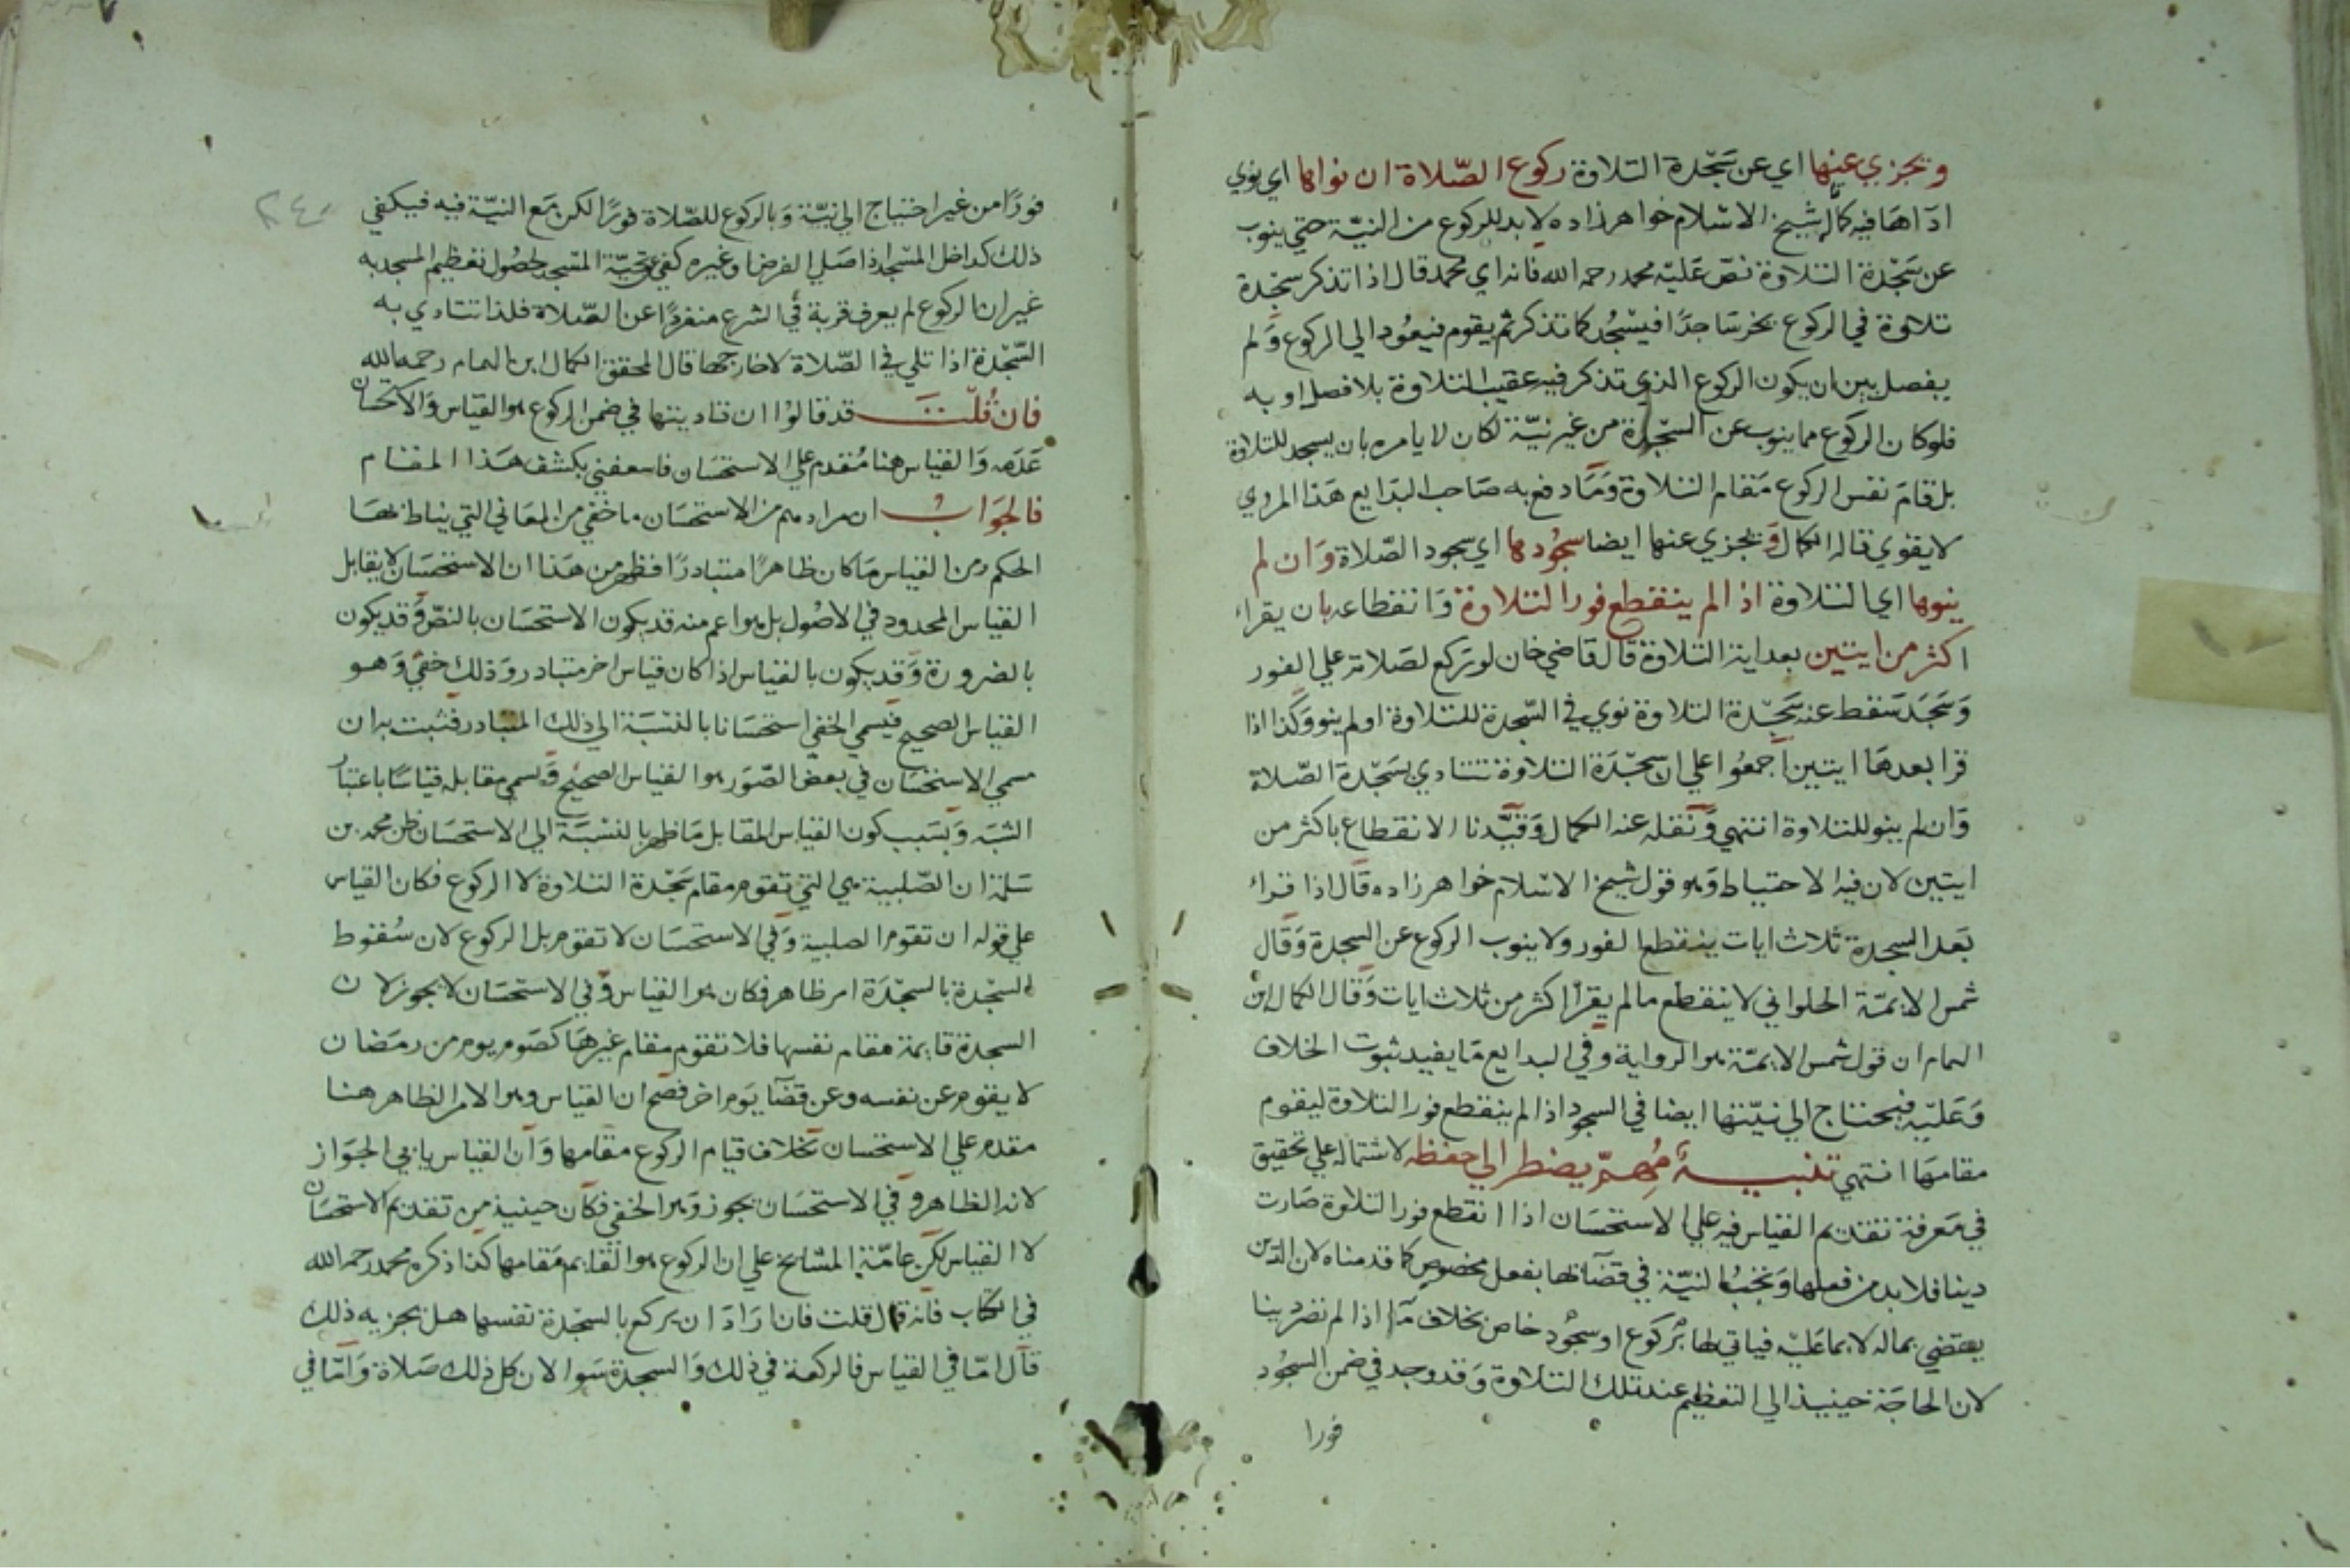 ويجزي عنها اي عن سَجْدة التلاوة ركوع الصّلاة ان نواها اي نوي
ادَاهَا فيه كما قاله شيخ الاسْلام خواهرزاده لا بد للركوع من النيّة حتي ينوب
عن سَجْدة التلاوة نصّ عَليْه محمد رحمه الله فانه اي محمد قال اذا تذكر سجْدة
تلاوة في الركوع يخر سَاجدًا فيسْجُد كما تذكر ثم يقوم فيعُود الي الركوع وَلم
يفصل بين ان يكون الركوع الذي تذكر فيه عقيب التلاوة بلا فصل او به
فلو كان الركوع مما ينوب عن السّجدة من غير نيّة لكان لا يامره بان يسجد للتلاوة
بل قامَ نفس الركوع مَقام التلاوة وَمَا دفع به صَاحب البدَايع هَذا المروي
لا يقوي قاله الكمال وَيجزي عنها ايضا سجُودها اي سجود الصّلاة وَان لم
ينوها اي التلاوة اذا لم ينقطع فور التلاوة وَانقطاعه بان يقراء
اكثر من ايتين بعد اية التلاوة قال قاضي خان لو ركع لصَلاته علي الفور
وَسَجَدَ سَقط عنه سَجْدة التلاوة نوي في السّجدة للتلاوة او لم ينو وَكذا اذا
قرا بعدهَا ايتين اجمعُوا علي ان سجْدَة التلاوة تتادي بسَجْدة الصّلاة
وَان لم ينو للتلاوة انتهي وَنقله عنه الكمال وَقيَّدنا الانقطاع باكثر من
ايتين لان فيه الاحتياط وَهو قول شيخ الاسْلام خواهرزاده قَال اذا قراء
بَعد السجدة ثلاث ايات ينقطع الفور ولا ينوب الركوع عن السجدة وَقَال
شمس الايمّة الحلواني لا ينقطع ما لم يقرا اكثر من ثلاث ايات وَقال الكمال ابن
الهمام ان قول شمس الايمّة هو الرواية وفي البدايع مَا يفيد ثبوت الخلاف
وَعَليْه فيحتاج الي نيّتها ايضا في السجود اذا لم ينقطع فور التلاوة ليقوم
مقامهَا انتهي تنبيه مُهمّ يضطر الي حفظه لاشتماله علي تحقيق
في مَعرفة تقديم القياس فيه علي الاستحسَان اذا انقطع فور التلاوة صَارت
دينا فلا بد من فعلها وَتجب النيّة في قضَائها بفعل مخصوص كما قدمناه لان الدّين
يقتضي بماله لا بما عَليْه فياتي لها بركوع او سجُود خاص بخلاف ما اذا لم تصر دينا
لان الحاجَة حينيذ الي التعظيم عند تلك التلاوة وَقد وجد في ضمن السجُود
فورا
٢٤٠
فورًا من غير احتياج الي نيّة وَبالركوع للصّلاة فورًا لكن مَع النيّة فيه فيكفي
ذلك كداخل المسْجد اذا صَلي الفرض او غيره كفي عن تحيّة المسْجد لحصُول تعظيم المسجد به
غير ان الركوع لم يعرف قربة في الشرع منفردًا عن الصّلاة فلذا تتادي به
السّجْدة اذا تلي في الصّلاة لا خارجها قال المحقق الكمال ابن الهمام رحمه الله
فان قُلْت قد قالوْا ان تاديتها في ضمن الركوع هو القياس وَالاستحسَان
عَدَمه وَالقياس هنا مُقدم علي الاستحسَان فاسعفني بكشف هَذا المقام
فالجوَابُ ان مرادهم من الاستحسَان ما خفي من المعَاني التي يناط بهَا
الحكم ومن القياس مَا كان ظاهرًا متبادرًا فظهر من هَذا ان الاستحسَان لا يقابل
القياس المحدود في الاصُول بل هو اعم منه قد يكون الاستحسَان بالنصّ وَقد يكون
بالضرورة وَقد يكون بالقياس اذا كان قياس اخر متبادر وَذلك خفي وَهو
القياس الصحيح فيسمي الخفي استحسَانا بالنسْبَة الي ذلك المتبادر فثبت به ان
مسمي الاستحسَان في بعض الصّوَر هو القياس الصحيح وَيسمي مقابله قيَاسًا باعتبار
الشبَه وَبسَبب كون القياس المقابل مَا ظهر بالنسْبَة الي الاستحسَان ظن محمد بن
سَلمَة ان الصّلبية هي التي تقوم مقام سَجْدة التلاوة لا الركوع فكان القياس
علي قوله ان تقوم الصلبية وَفي الاستحسَان لا تقوم بل الركوع لان سُقوط
السّجْدة بالسجْدَة امر ظاهر فكان هو القياس وَفي الاستحسَان لا يجوز لان
السجدة قايمة مقام نفسها فلا تقوم مقام غيرهَا كصَوم يوم من رمَضَان
لا يقوم عن نفسه وعن قضَاء يَوم اخر فصَح ان القياس وهو الامر الظاهر هنا
مقدم علي الاستحسان بخلاف قيام الركوع مقامها وَان القياس يابي الجَوَاز
لانه الظاهر وَفي الاستحسَان يجوز وَهو الخفي فكان حينيذ من تقديم الاستحسَان
لا القياس لكن عامّة المشايخ علي ان الركوع هو القايم مَقامها كذا ذكره محمد رحمه الله
في الكتاب فانه قال قلت فان ارَادَ ان يركع بالسّجْدة نفسها هل يجزيه ذلك
قال امّا في القياس فالركعة في ذلك وَالسجدة سَوا لان كل ذلك صَلاة وَامّا في